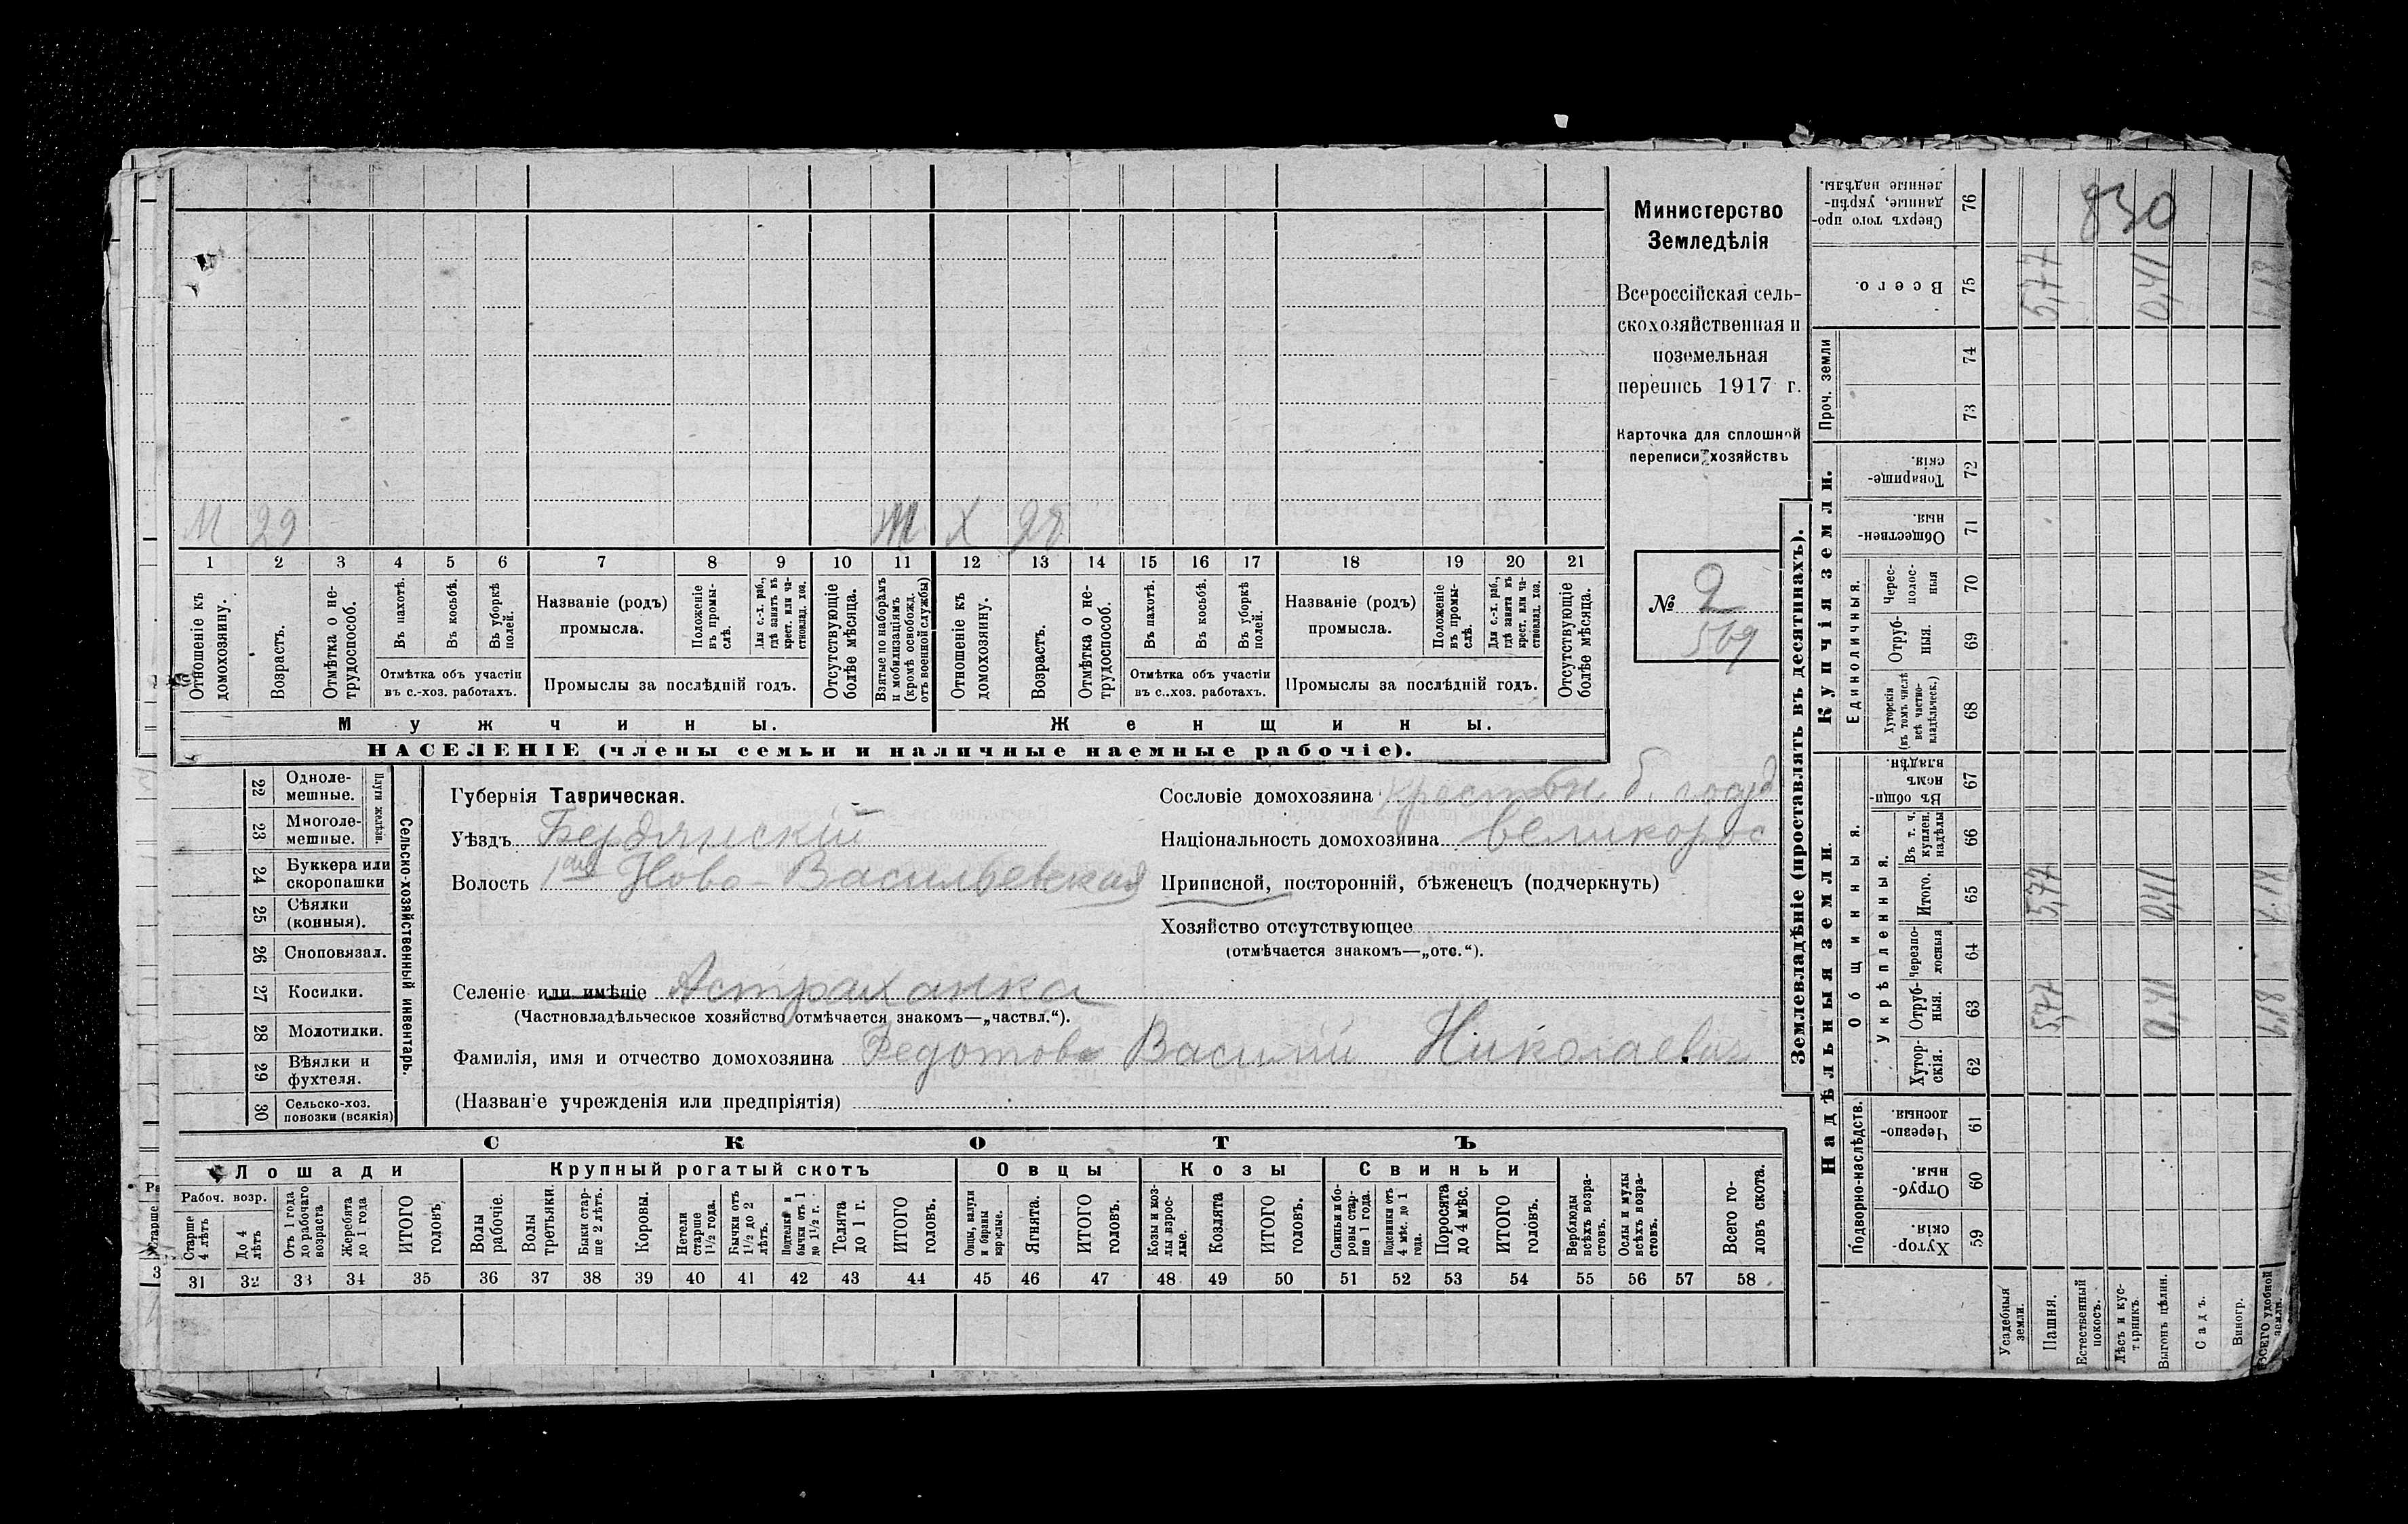 М 29 М Х 28
1 2 3 4 5 6 7 8 9 10 11 12 13 14 15 16 17 18 19 20 21
Отношеніе къ домохозяину.
Возрастъ.
Отмѣтка о не-трудоспособ.
Въ пахотѣ.
Въ косьбѣ.
Въ уборкѣ полей.
Отмѣтка объ участіи
въ с.-хоз. работахъ.
Названіе (родъ)
промысла.
Положеніе въ промы-слѣ.
Для с.-х. раб., гдѣ занятъ въ крест. или ча-стновлад. хоз.
Промыслы за послѣдній годъ.
Отсутствующіе болѣе мѣсяца.
Взятые по наборамъ и мобилизаціямъ (кромѣ освобожд. отъ военной службы)
Отношеніе къ домохозяину.
Возрастъ.
Отмѣтка о не-трудоспособ.
Въ пахотѣ.
Въ косьбѣ.
Въ уборкѣ полей.
Отмѣтка объ участіи
въ с..хоз. работахъ.
Названіе (родъ)
промысла.
Положеніе въ промы-слѣ.
Для с.-х. раб., гдѣ занята въ крест. или ча-стновлад. хоз.
Промыслы за послѣдній годъ.
Отсутствующіе болѣе мѣсяца.
Мужчины. Женщины.
НАСЕЛЕНІЕ (члены семьи и наличные наемные рабочіе).
Министерство
Земледѣлія
Всероссійская сель-
скохозяйственная и
поземельная
перепись 1917 г.
Карточка для сплошной
переписи хозяйствъ
№ 2
569
22 Одноле-
мешные.
23 Многоле-
мешные.
Плуги желѣзн.
24 Буккера или
скоропашки
25 Сѣялки
(конныя).
26 Сноповязал.
27 Косилки.
28 Молотилки.
29 Вѣялки и
фухтеля.
30 Сельско-хоз.
повозки (всякія)
Сельско-хозяйственный инвентарь.
Губернія Таврическая.
Уѣздъ Бердянскій
Волость 1ая Ново-Васильевская
Селеніе или имѣніе Астраханка
(Частновладѣльческое хозяйство отмѣчается знакомъ—„частвл.“).
Фамилія, имя и отчество домохозяина Федотовъ Василій Николаевич
(Названіе учрежденія или предпріятія)
Сословіе домохозяина Крестьян. б. госуд
Національность домохозяина великорос
Приписной, посторонній, бѣженецъ (подчеркнуть)
Хозяйство отсутствующее
(отмѣчается знакомъ—„отс.“).
СКОТЪ
Лошади Крупный рогатый скотъ Овцы Козы Свиньи
Рабоч. возр.
Старше 4 лѣтъ
До 4 лѣтъ
Отъ 1 года до рабочаго возраста
Жеребята до 1 года
ИТОГО головъ.
Волы рабочіе.
Волы третьяки.
Быки стар-ше 2 лѣтъ.
Коровы.
Нетели старше 1½ года.
Бычки отъ 1½ до 2 лѣтъ.
Подтелки и бычки отъ 1 до 1½ г.
Телята до 1 г.
ИТОГО головъ.
Овцы, валухи и бараны взрослые.
Ягнята.
ИТОГО головъ.
Козы и коз-лы взрос-лые.
Козлята
ИТОГО головъ.
Свиньи бо-ровы стар-ше 1 года.
Подсвинки отъ 4 мѣс. до 1 года.
Поросята до 4 мѣс.
ИТОГО головъ.
Верблюды всѣхъ возра-стовъ.
Ослы и мулы всѣхъ возра-стовъ.
Всего го-ловъ скота.
31 32 33 34 35 36 37 38 39 40 41 42 43 44 45 46 47 48 49 50 51 52 53 54 55 56 57 58
Землевладѣніе (проставлять въ десятинахъ).
Надѣльныя земли
Подворно-наслѣдств.
Хутор-скія. 59
Отруб-ныя. 60
Черезпо-лосныя. 61
Общинныя.
Укрѣпленныя.
Хутор-скія. 62
Отруб-ныя. 63 5,77 0,41
Черезпо-лосныя 64
Итого. 65 5,77 0,41
Въ т. ч. куплен. надѣлы 66
Въ общи-номъ владѣн. 67
Купчія земли.
Единоличныя.
Хуторскія (въ томъ числѣ всѣ частно-владѣльческ.) 68
Отруб-ныя. 69
Черес-полос-ныя 70
Обществен-ныя. 71
Товарище-скія. 72
Проч. земли
73
74
Всего. 75 5,77 0,41
Сверхъ того про-данные, укрѣп-ленные надѣлы. 76
830
Усадебныя земли.
Пашня.
Естественный покосъ.
Лѣсъ и кус-тарникъ.
Выгонъ цѣлин.
Садъ.
Виногр.
ВСЕГО удобной земли.